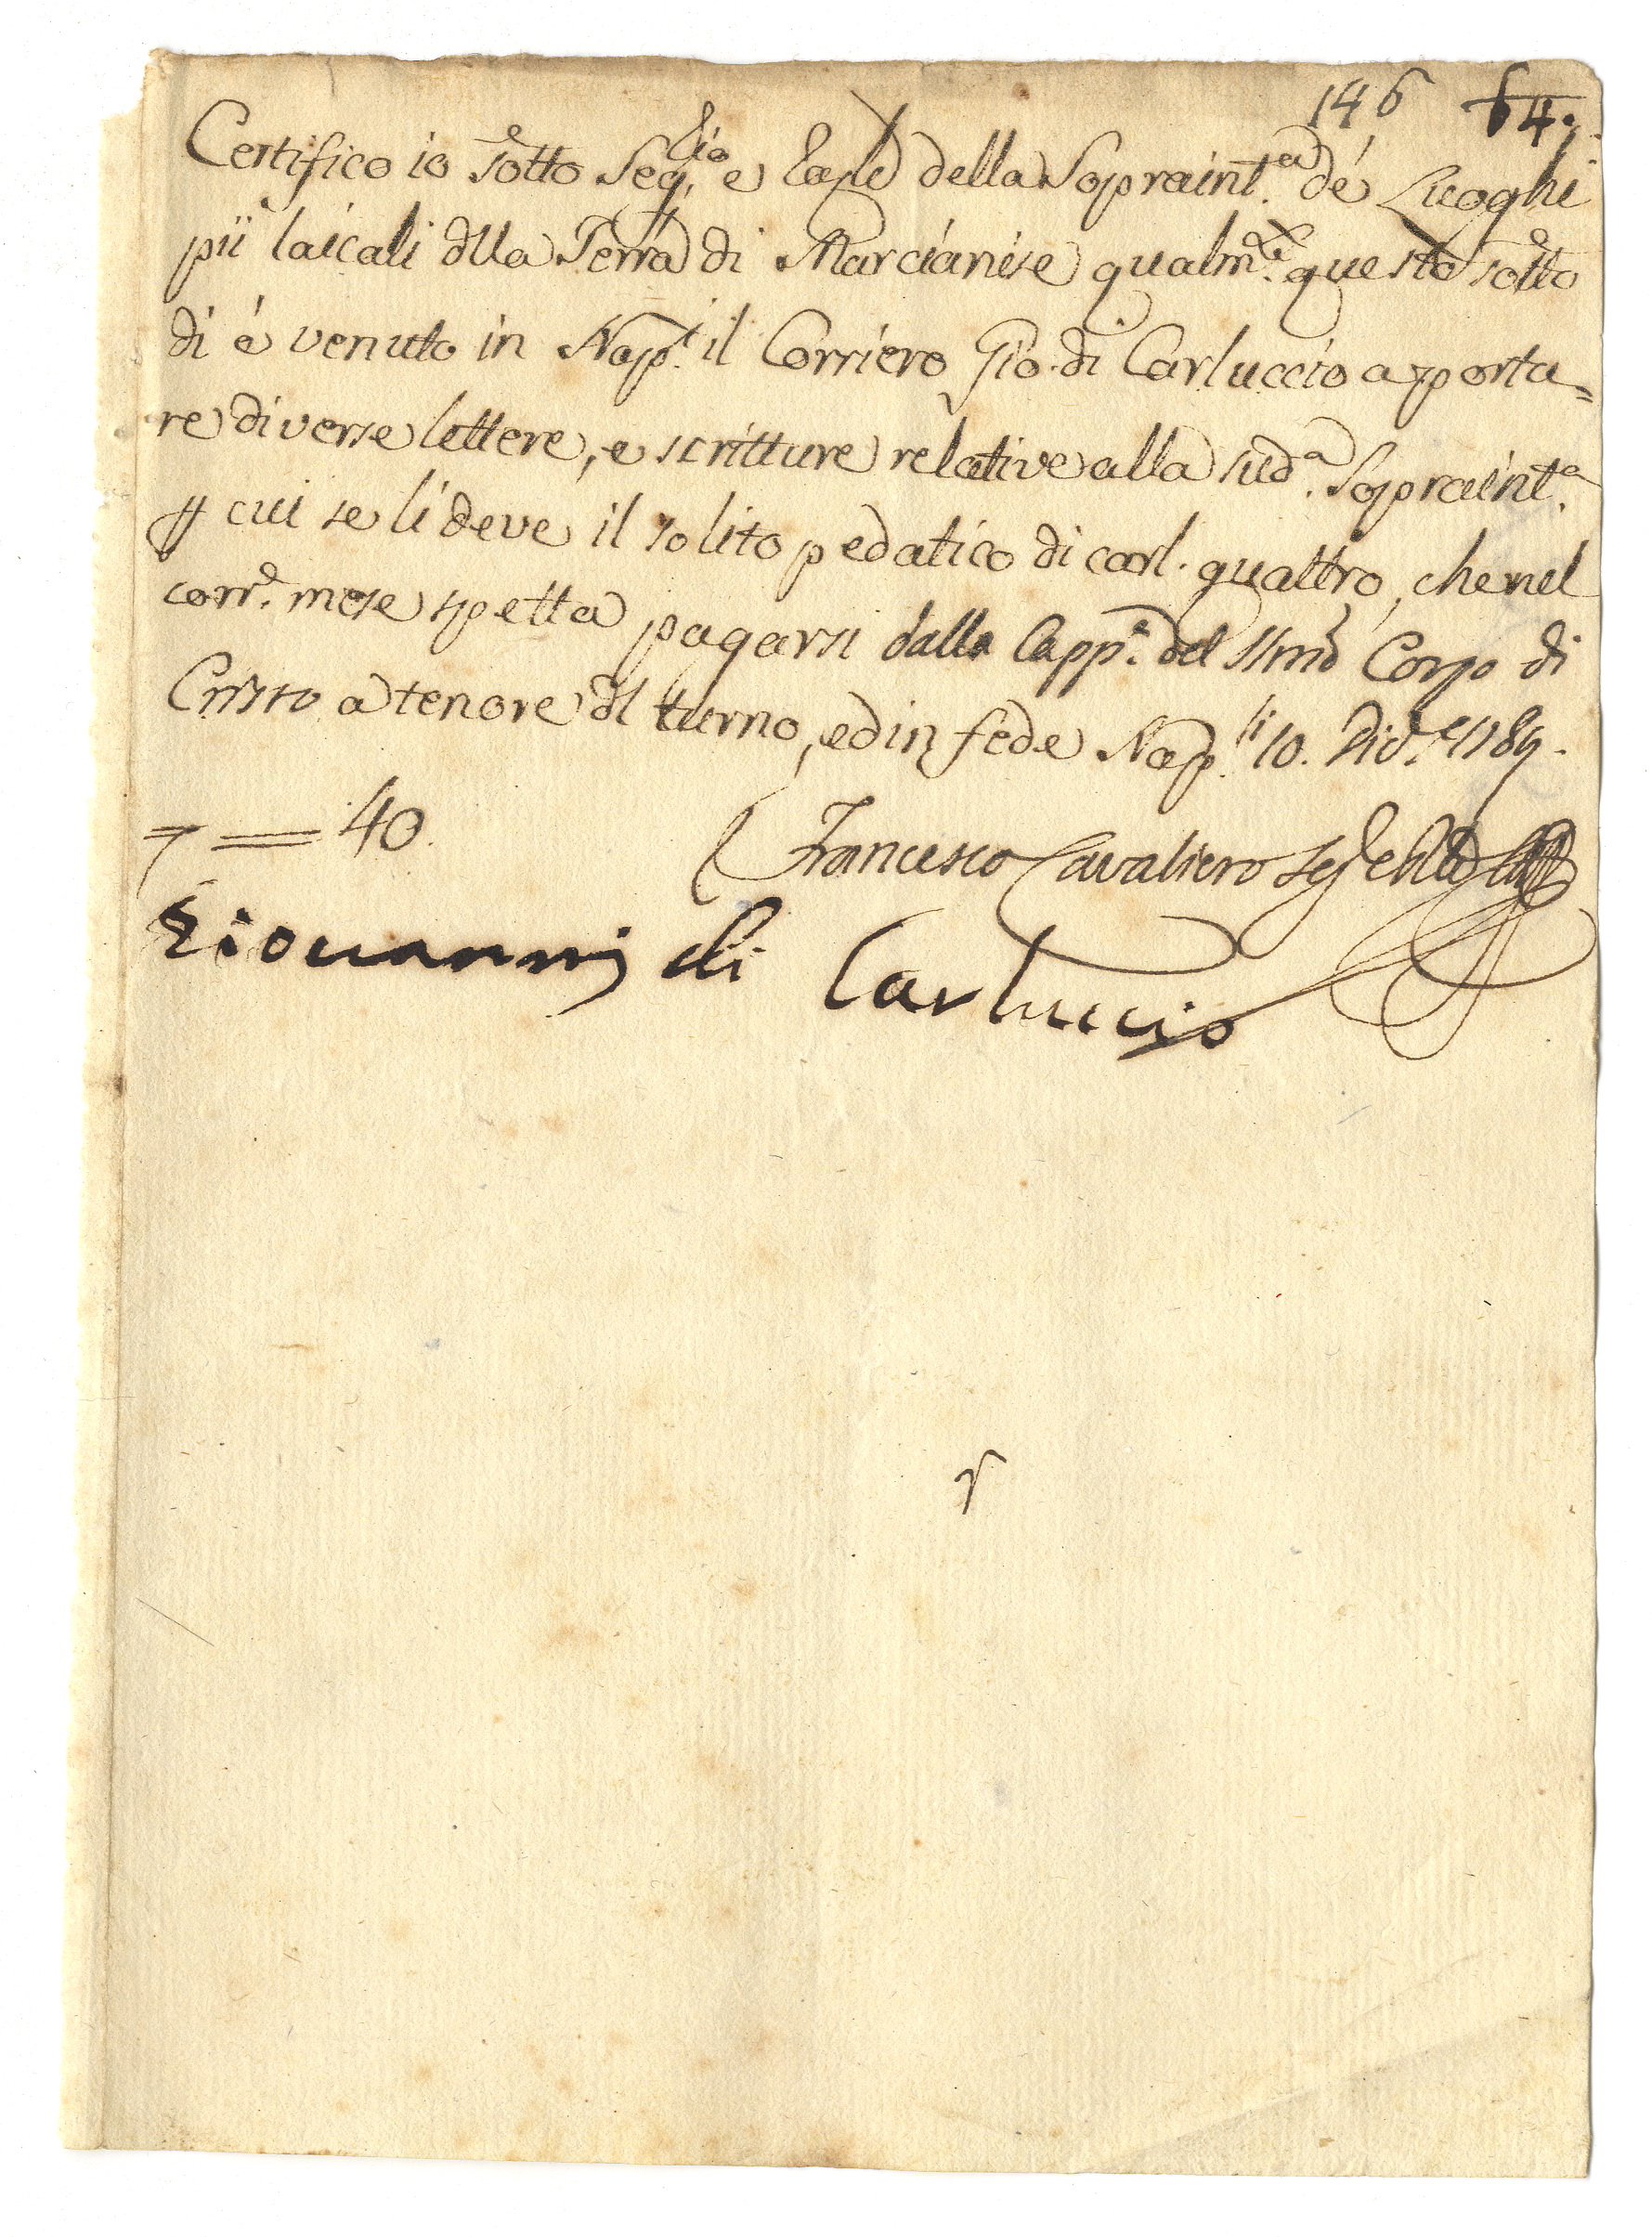 146 64.
Certifico io sotto Seg.rio e Raz.le della Sopraint.a dé Luoghi
pii laicali dlla Terra di Marcianise qualm.te questo sotto
dí é venuto in Nap.i il Corriero Gio. di Carluccio a porta=
re diverse lettere, e scritture relative alla sud.a Sopraint.a
p cui se li deve il solito pedatico di carl. quattro, che nel
corr.e mese spetta pagarsi dalla Capp.a del SSmo Corpo di
Cristo a tenore dl turno, ed in fede Nap. li 10. 1789.
40.
Francesco Cavaliero Seg.
Giovanni di Carluccio